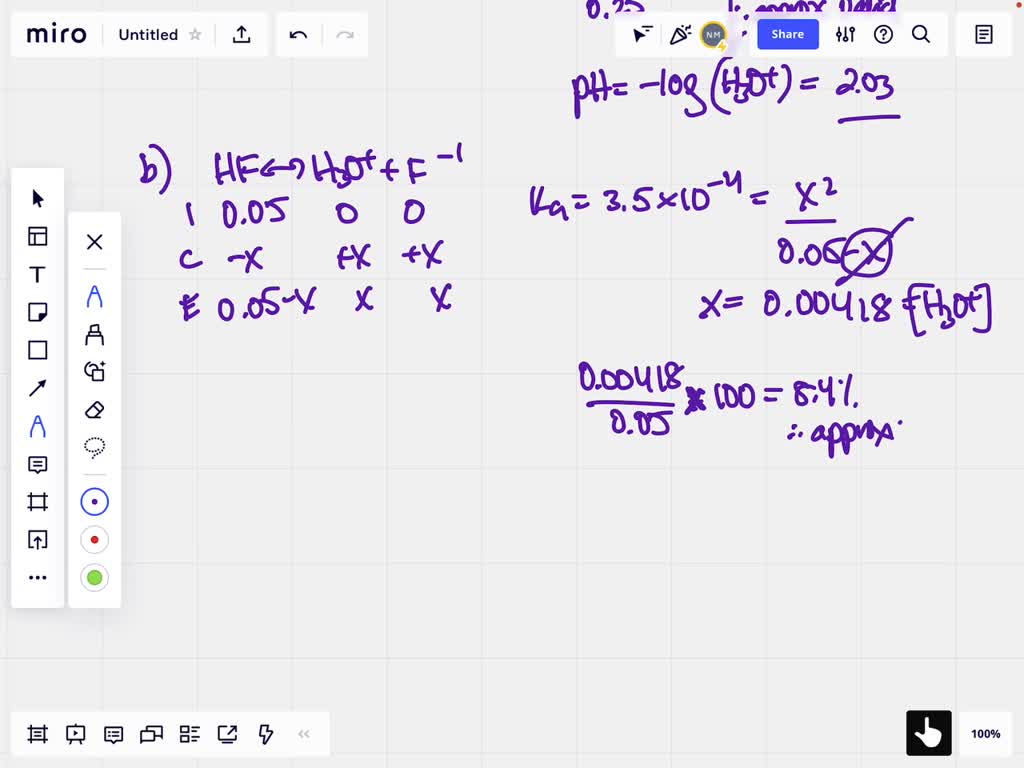 miro
Untitled
NM
Share
0.25 ∴ approx valid
pH = -log (H3O+) = 2.03
b) HF ↔ H3O+ + F -1
I 0.05 0 0
C -X +X +X
E 0.05-X X X
Ka = 3.5 x 10^-4 = X^2
0.05-X
X = 0.00418 [H3O+]
0.00418
0.05
x 100 = 8.4%
∴ approx
100%